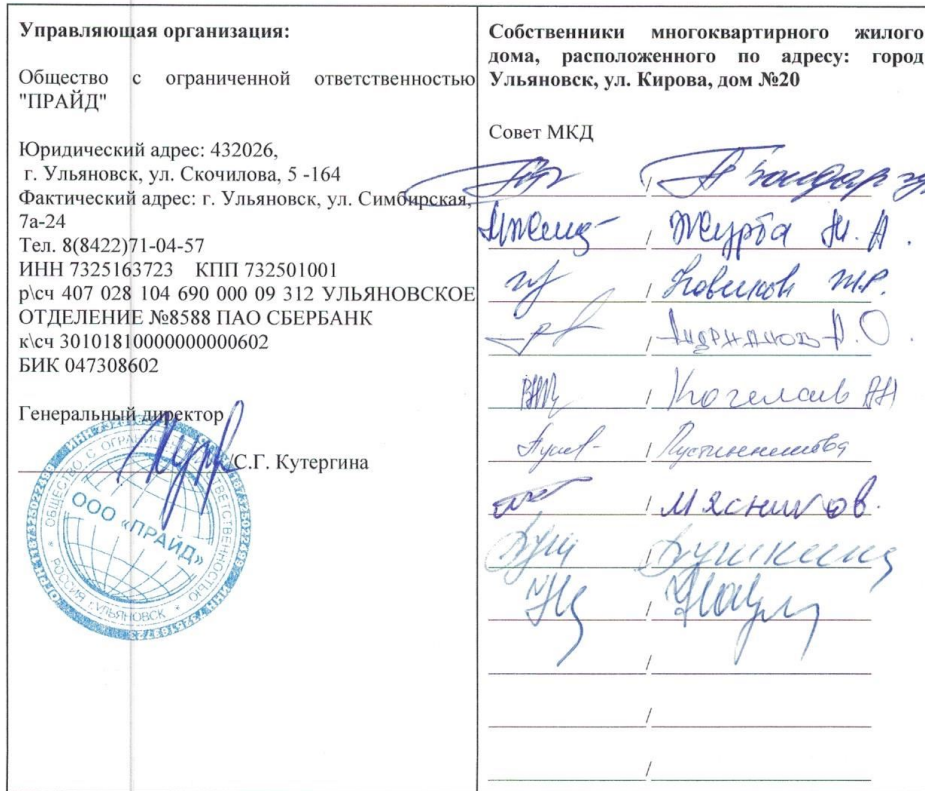 Управляющая организация:
Общество с ограниченной ответственностью
"ПРАЙД"
Юридический адрес: 432026,
г. Ульяновск, ул. Скочилова, 5 -164
Фактический адрес: г. Ульяновск, ул. Симбирская,
7а-24
Тел. 8(8422)71-04-57
ИНН 7325163723 КПП 732501001
р\сч 407 028 104 690 000 09 312 УЛЬЯНОВСКОЕ
ОТДЕЛЕНИЕ №8588 ПАО СБЕРБАНК
к\сч 30101810000000000602
БИК 047308602
Генеральный директор
С.Г. Кутергина
ООО «ПРАЙД»
РОССИЯ г.УЛЬЯНОВСК
Собственники многоквартирного жилого
дома, расположенного по адресу: город
Ульяновск, ул. Кирова, дом №20
Совет МКД
/
/ Журба Н. А.
/ Новиков
/
/
/
/ Мясников.
/
/
/
/
/